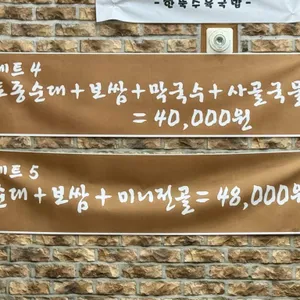 - 한뚝수육국밥 -
세트 4
토종순대+보쌈+막국수+사골국물
= 40,000원
세트 5
순대+보쌈+미니전골=48,000원